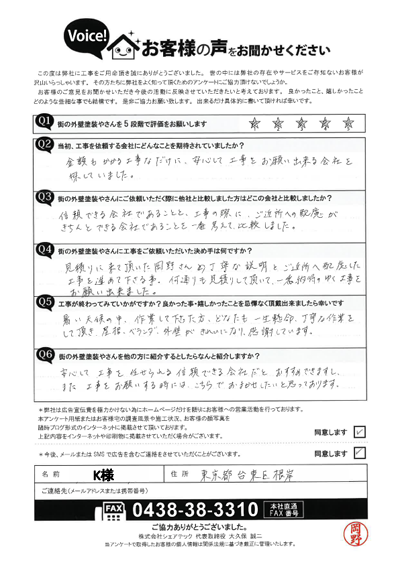 Voice! お客様の声をお聞かせください
この度は弊社に工事をご用命頂き誠にありがとうございました。 世の中には弊社の存在やサービスをご存知ないお客様が
沢山いらっしゃいます。 その方たちに弊社をよく知って頂くためのアンケートにご協力頂けないでしょうか。
お客様のご意見をお聞かせいただき今後の活動に反映させていただきたいと考えております。 良かったこと、嬉しかったこと
どのような些細な事でも結構です。 是非ご協力お願い致します。 出来るだけ具体的に書いて頂ければ幸いです。
Q1 街の外壁塗装やさんを5段階で評価をお願いします
Q2 当初、工事を依頼する会社にどんなことを期待されていましたか?
金額もかかる工事なだけに、安心して工事をお願い出来る会社を
探していました。
Q3 街の外壁塗装やさんにご依頼いただく際に他社と比較しました方はどこの会社と比較しましたか?
信頼できる会社であることと、工事の際に、ご近所への配慮が
きちんとできる会社であることを一番考えて、比較しました。
Q4 街の外壁塗装やさんに工事をご依頼いただいた決め手は何ですか?
見積りに来て頂いた岡野さんの丁寧な説明とご近所へ配慮した
工事を進めて下さる事。何通りも見積りして頂いて、一番納得のゆく工事を
お願い出来ました。
Q5 工事が終わってみていかがですか?良かった事・嬉しかったことを忌憚なく頂戴出来ましたら幸いです
暑い天候の中、作業して下さた方、どなたも一生懸命、丁寧な作業を
して頂き、屋根、ベランダ、外壁がきれいになり、感謝しています。
Q6 街の外壁塗装やさんを他の方に紹介するとしたらなんと紹介しますか?
安心して工事を任せられる信頼できる会社だとおすすめできますし、
また工事をお願いする時には、こちらでおまかせしたいと思っております。
*弊社は広告宣伝費を極力かけない為にホームページだけを頼りにお客様への営業活動を行っております。
本アンケート用紙またはお客様宅の調査風景や施工状況、お客様の顔写真を
随時ブログ形式のインターネットに掲載させて頂いております。
上記内容をインターネットや印刷物に掲載させていただく場合がございます。 同意します
*今後、メールまたはSMSで広告を含むご連絡をさせていただくことがございます。 同意します
名前 K様 住所 東京都台東区根岸
ご連絡先(メールアドレスまたは携帯番号)
FAX 0438-38-3310 本社直通 FAX番号
ご協力ありがとうございました。
株式会社シェアテック 代表取締役 大久保 誠二
※アンケートで取得したお客様の個人情報は関係法規に基づき厳正に管理いたします。
岡野